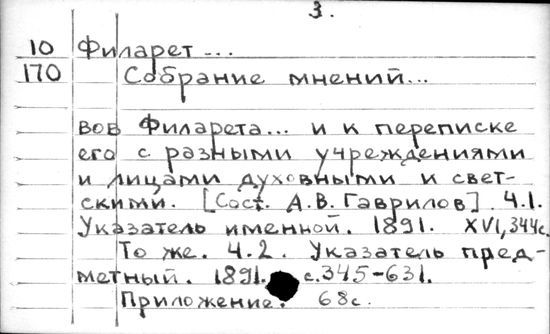 3.
10 Филарет...
170 Собрание мнений...
вов Филарета... и к переписке
его с разными учреждениями
и лицами духовными и свет-
скими. [Сост. А.В. Гаврилов]. Ч.1.
Указатель именной. 1891. XVI, 344с.
То же. Ч.2. Указатель пред-
метный. 1891. с.345-631.
Приложение. 68с.